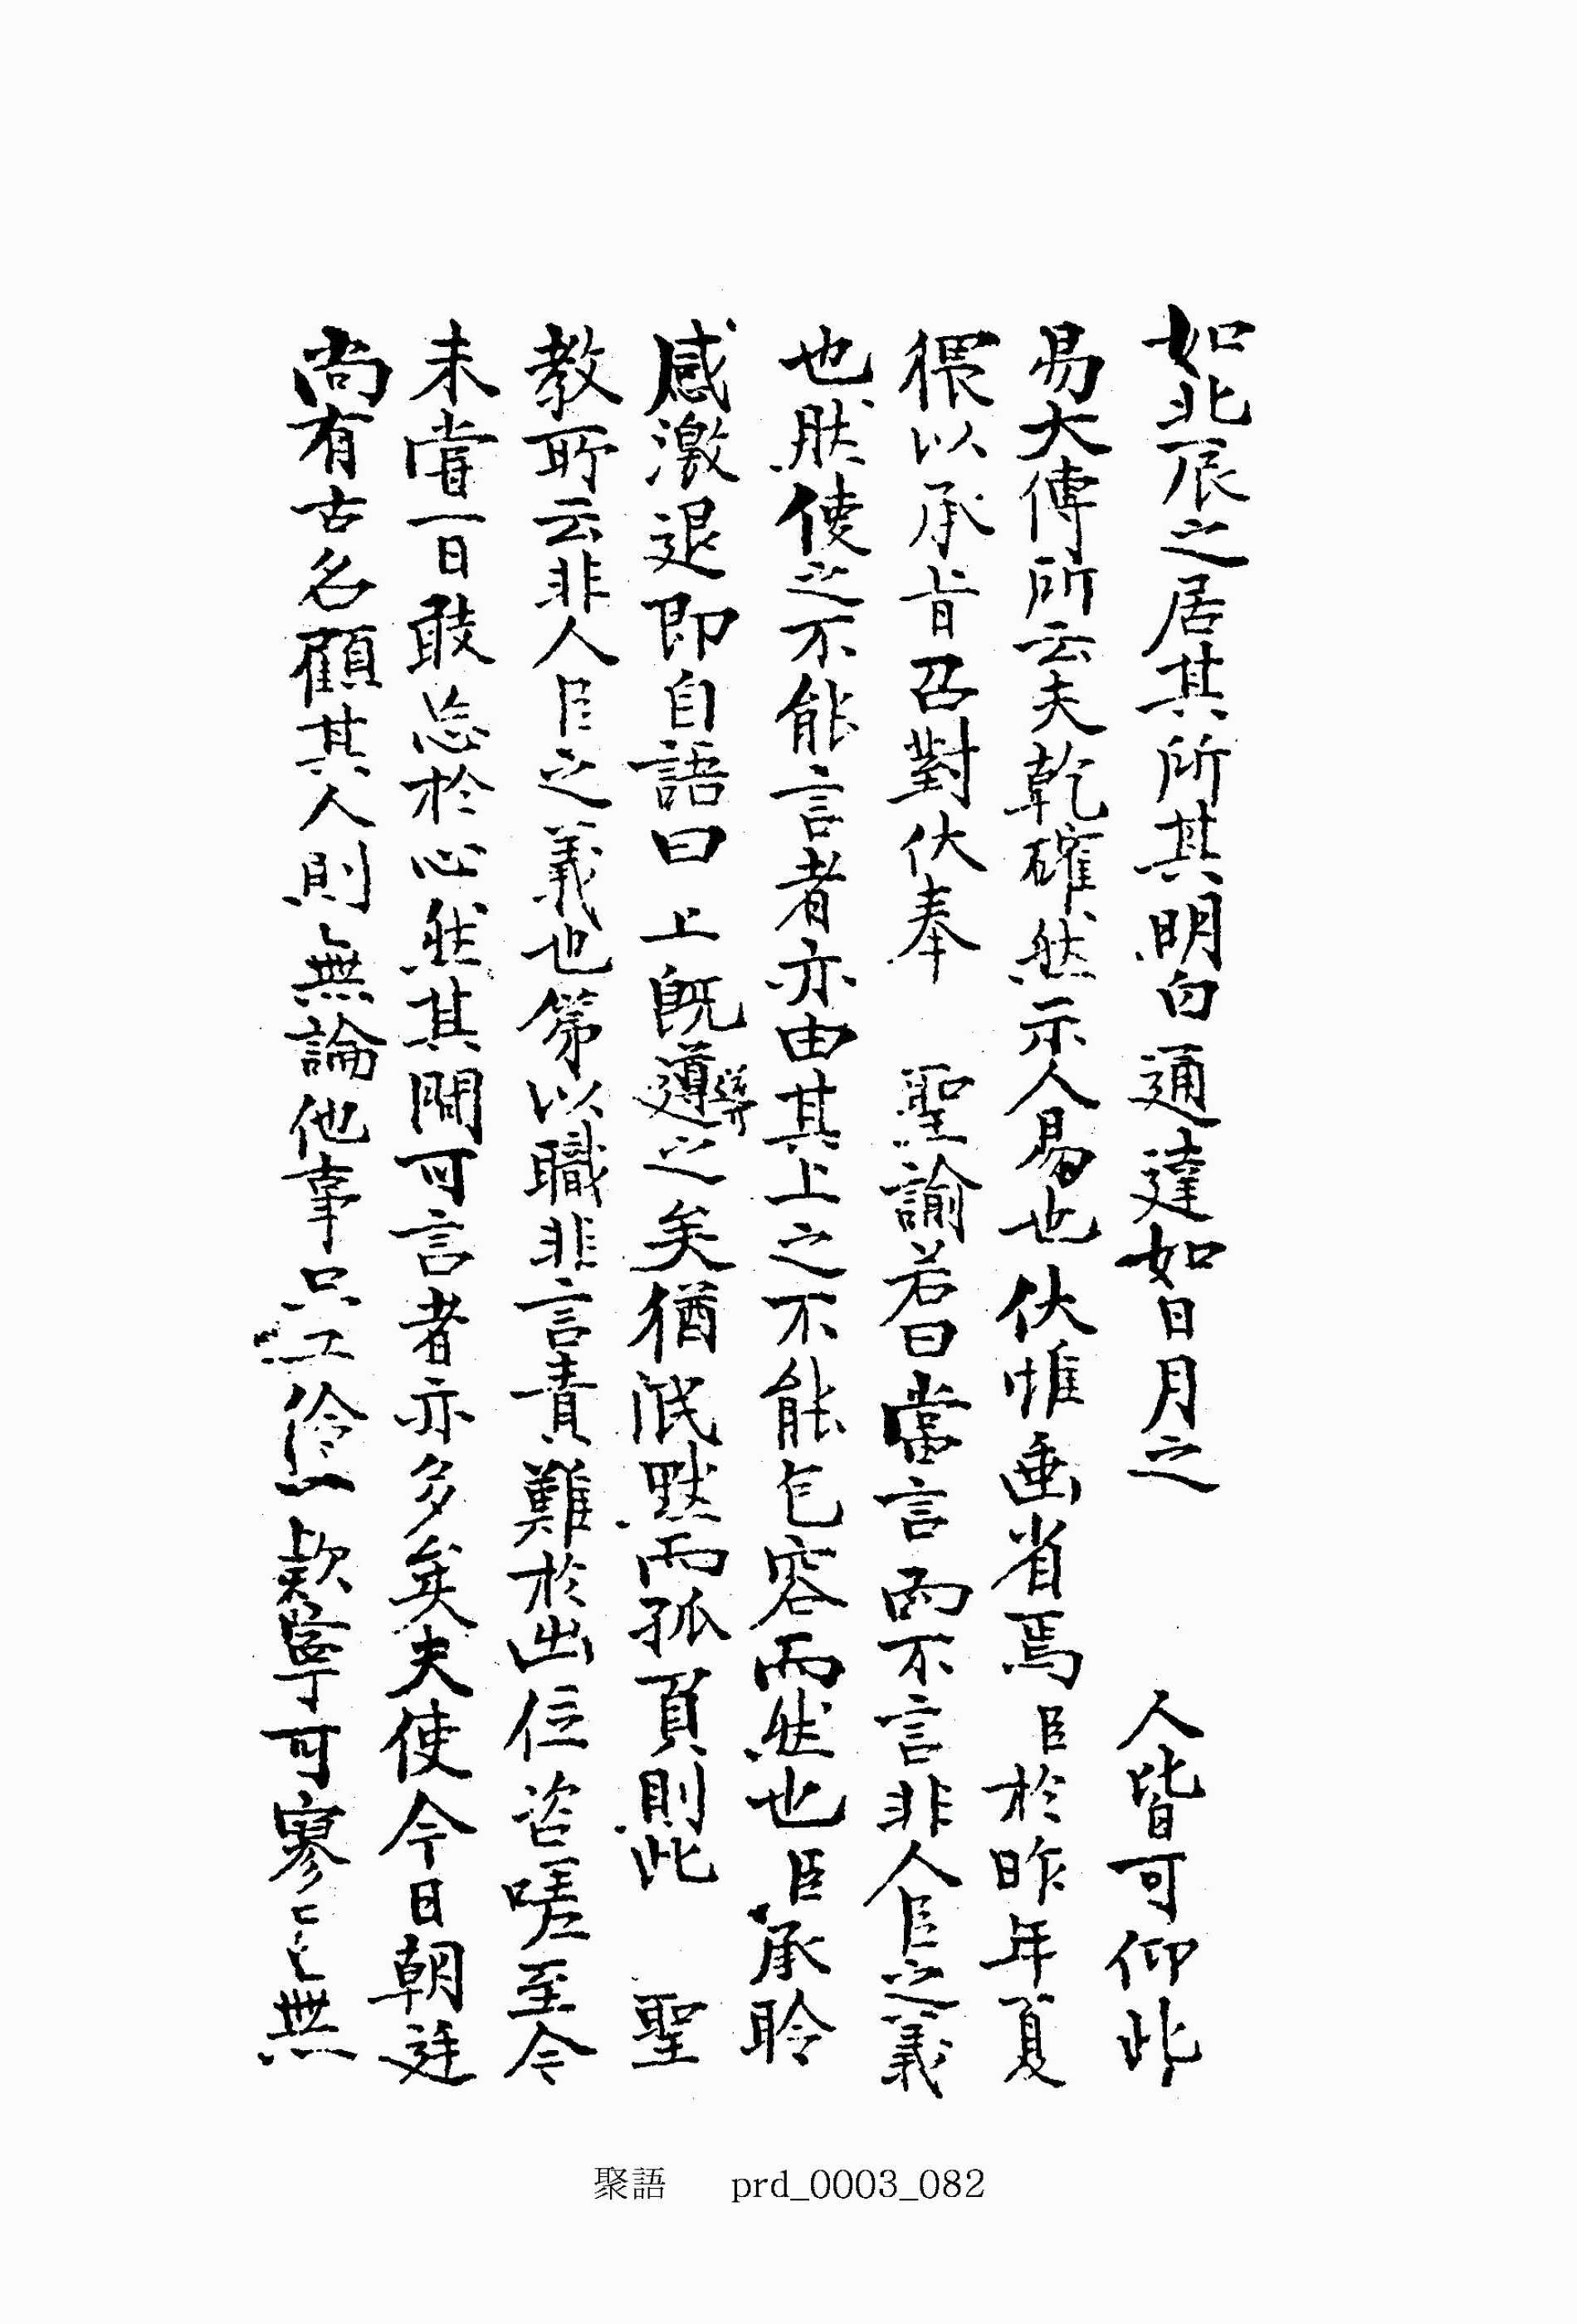 如北辰之居其所其明白通達如日月之 人皆可仰此
易大傳所云夫乾確然示人易也伏惟垂省焉臣於昨年夏
猥以承旨召對伏奉 聖諭若曰當言而不言非人臣之義
也然使之不能言者亦由其上之不能包容而然也臣承聆
感激退卽自語曰 上旣遵導之矣猶泯默而孤負則此 聖
教所云非人臣之義也第以職非言責難於出位咨嗟至今
未嘗一日敢忘於心然其間可言者亦多矣夫使今日朝廷
尚有古名顧其人則無論他事只工伶一款寧可寥〻無
聚語 prd_0003_082